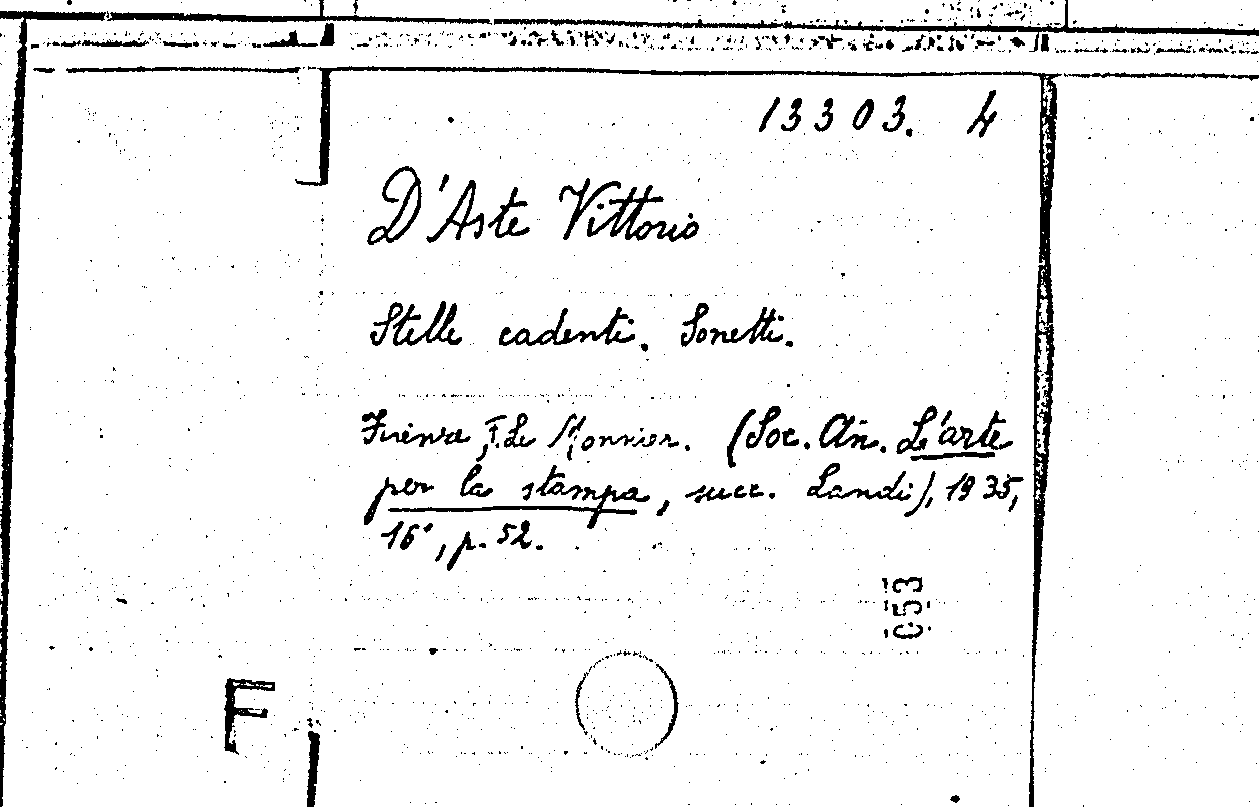 13303. 4
D'Aste Vittorio
Stelle cadenti. Sonetti.
Firenze, F. Le Monnier. (Soc. An. L'arte
per la stampa, succ. Landi), 1935,
16°, p. 52.
053
F